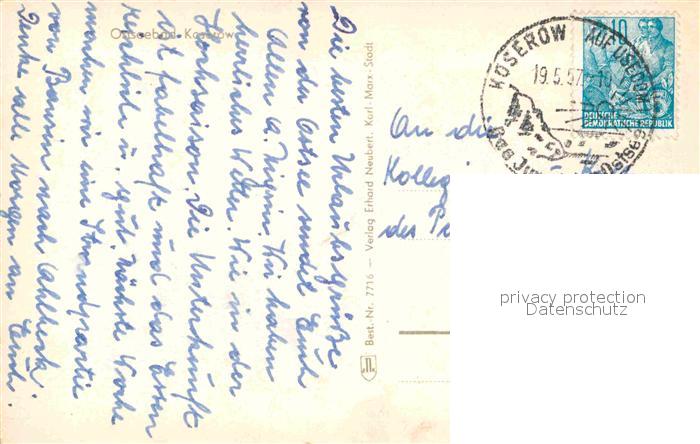 Ostseebad Koserow
Die besten Urlaubsgrüße
von der Ostsee sendet Euch
Allen A. Wir haben
herrliches Wetter. Wie in der
Hochsaison. Die Unterkunft
ist fabelhaft und das Essen
reichlich u. gut. Nächste Woche
machen wir eine Strandpartie
von Bansin nach Ahlbeck.
Denke alle Morgen an Euch.
Best.-Nr. 7716 — Verlag Erhard Neubert, Karl-Marx-Stadt
KOSEROW AUF USEDOM
19.5.57
das
10
DEUTSCHE
DEMOKRATISCHE REPUBLIK
An die
Kolleg
des
privacy protection
Datenschutz